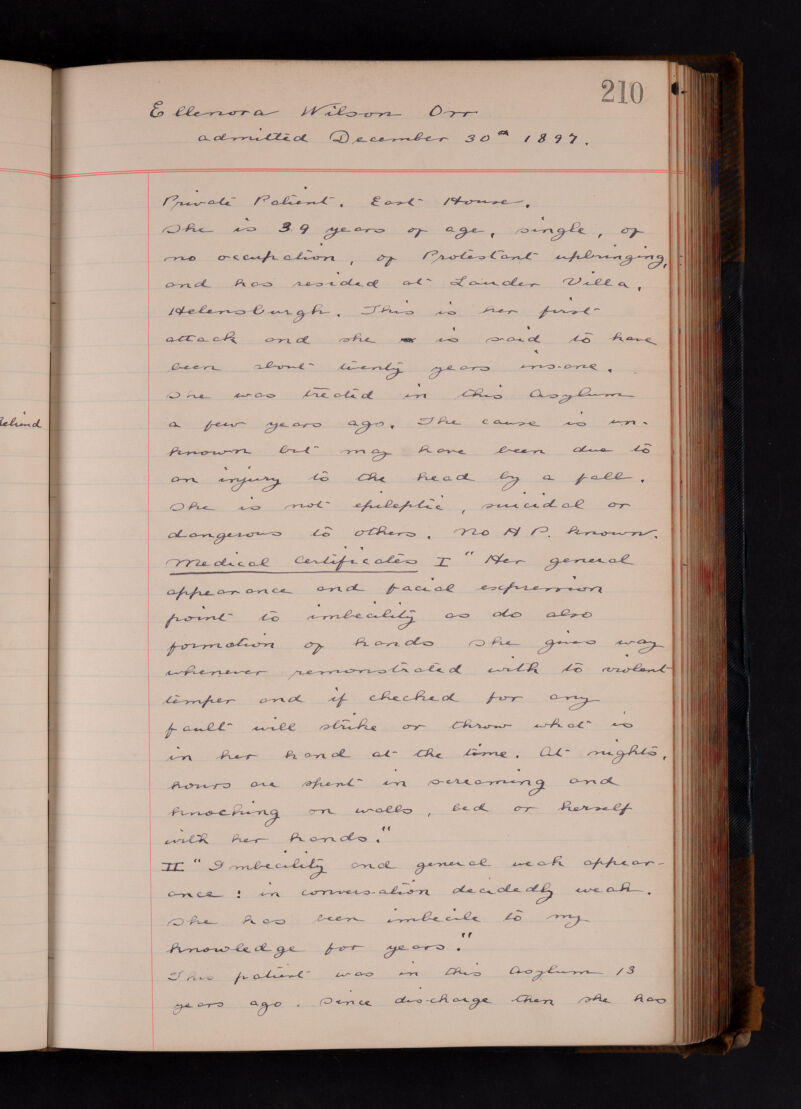 210
Ellenora Wilson Orr
admitted December 30th 1897.
Private Patient. East House.
She is 39 years of age, single, of
no occupation, of Protestant upbringing,
and has resided at Lauder Villa,
Helensburgh. This is her first
attack and she is said to have
been about twenty years insane.
She was treated in this Asylum
behind
a few years ago. The cause is un-
known but may have been due to
an injury to the head by a fall.
She is not epileptic, suicidal or
dangerous to others. No H P. known.
Medical Certificates I "Her general
appearance and facial expression
point to imbecility as do also
formation of hands She gives way
whenever remonstrated with to violent
temper and if checked for any
fault will strike or throw what is
in her hand at the time. At nights,
hours are spent in screaming and
knocking on walls, bed or herself
with her hands."
II "Imbecility and general weak appear-
ance : in conversation decidedly weak.
She has been imbecile to my
knowledge for years."
This patient was in this Asylum 13
years ago. Since discharge then she has